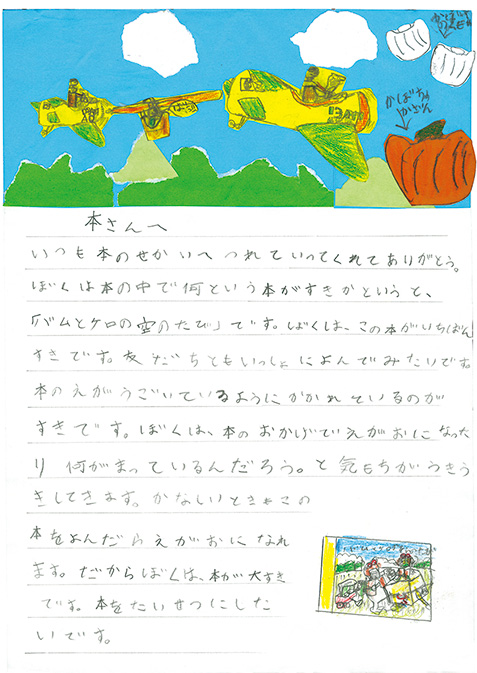 かぼちゃ
かざん
本さんへ
いつも本のせかいへつれていってくれてありがとう。
ぼくは本の中で何という本がすきかというと、
「バムとケロの空のたび」です。ぼくは、この本がいちばん
すきです。友だちともいっしょによんでみたいです。
本のえがうごいているようにかかれているのが
すきです。ぼくは、本のおかげでえがおになった
り何がまっているんだろう。と気もちがうきう
きしてきます。かなしいときもこの
本をよんだらえがおになれ
ます。だからぼくは、本が大すき
です。本をたいせつにした
いです。